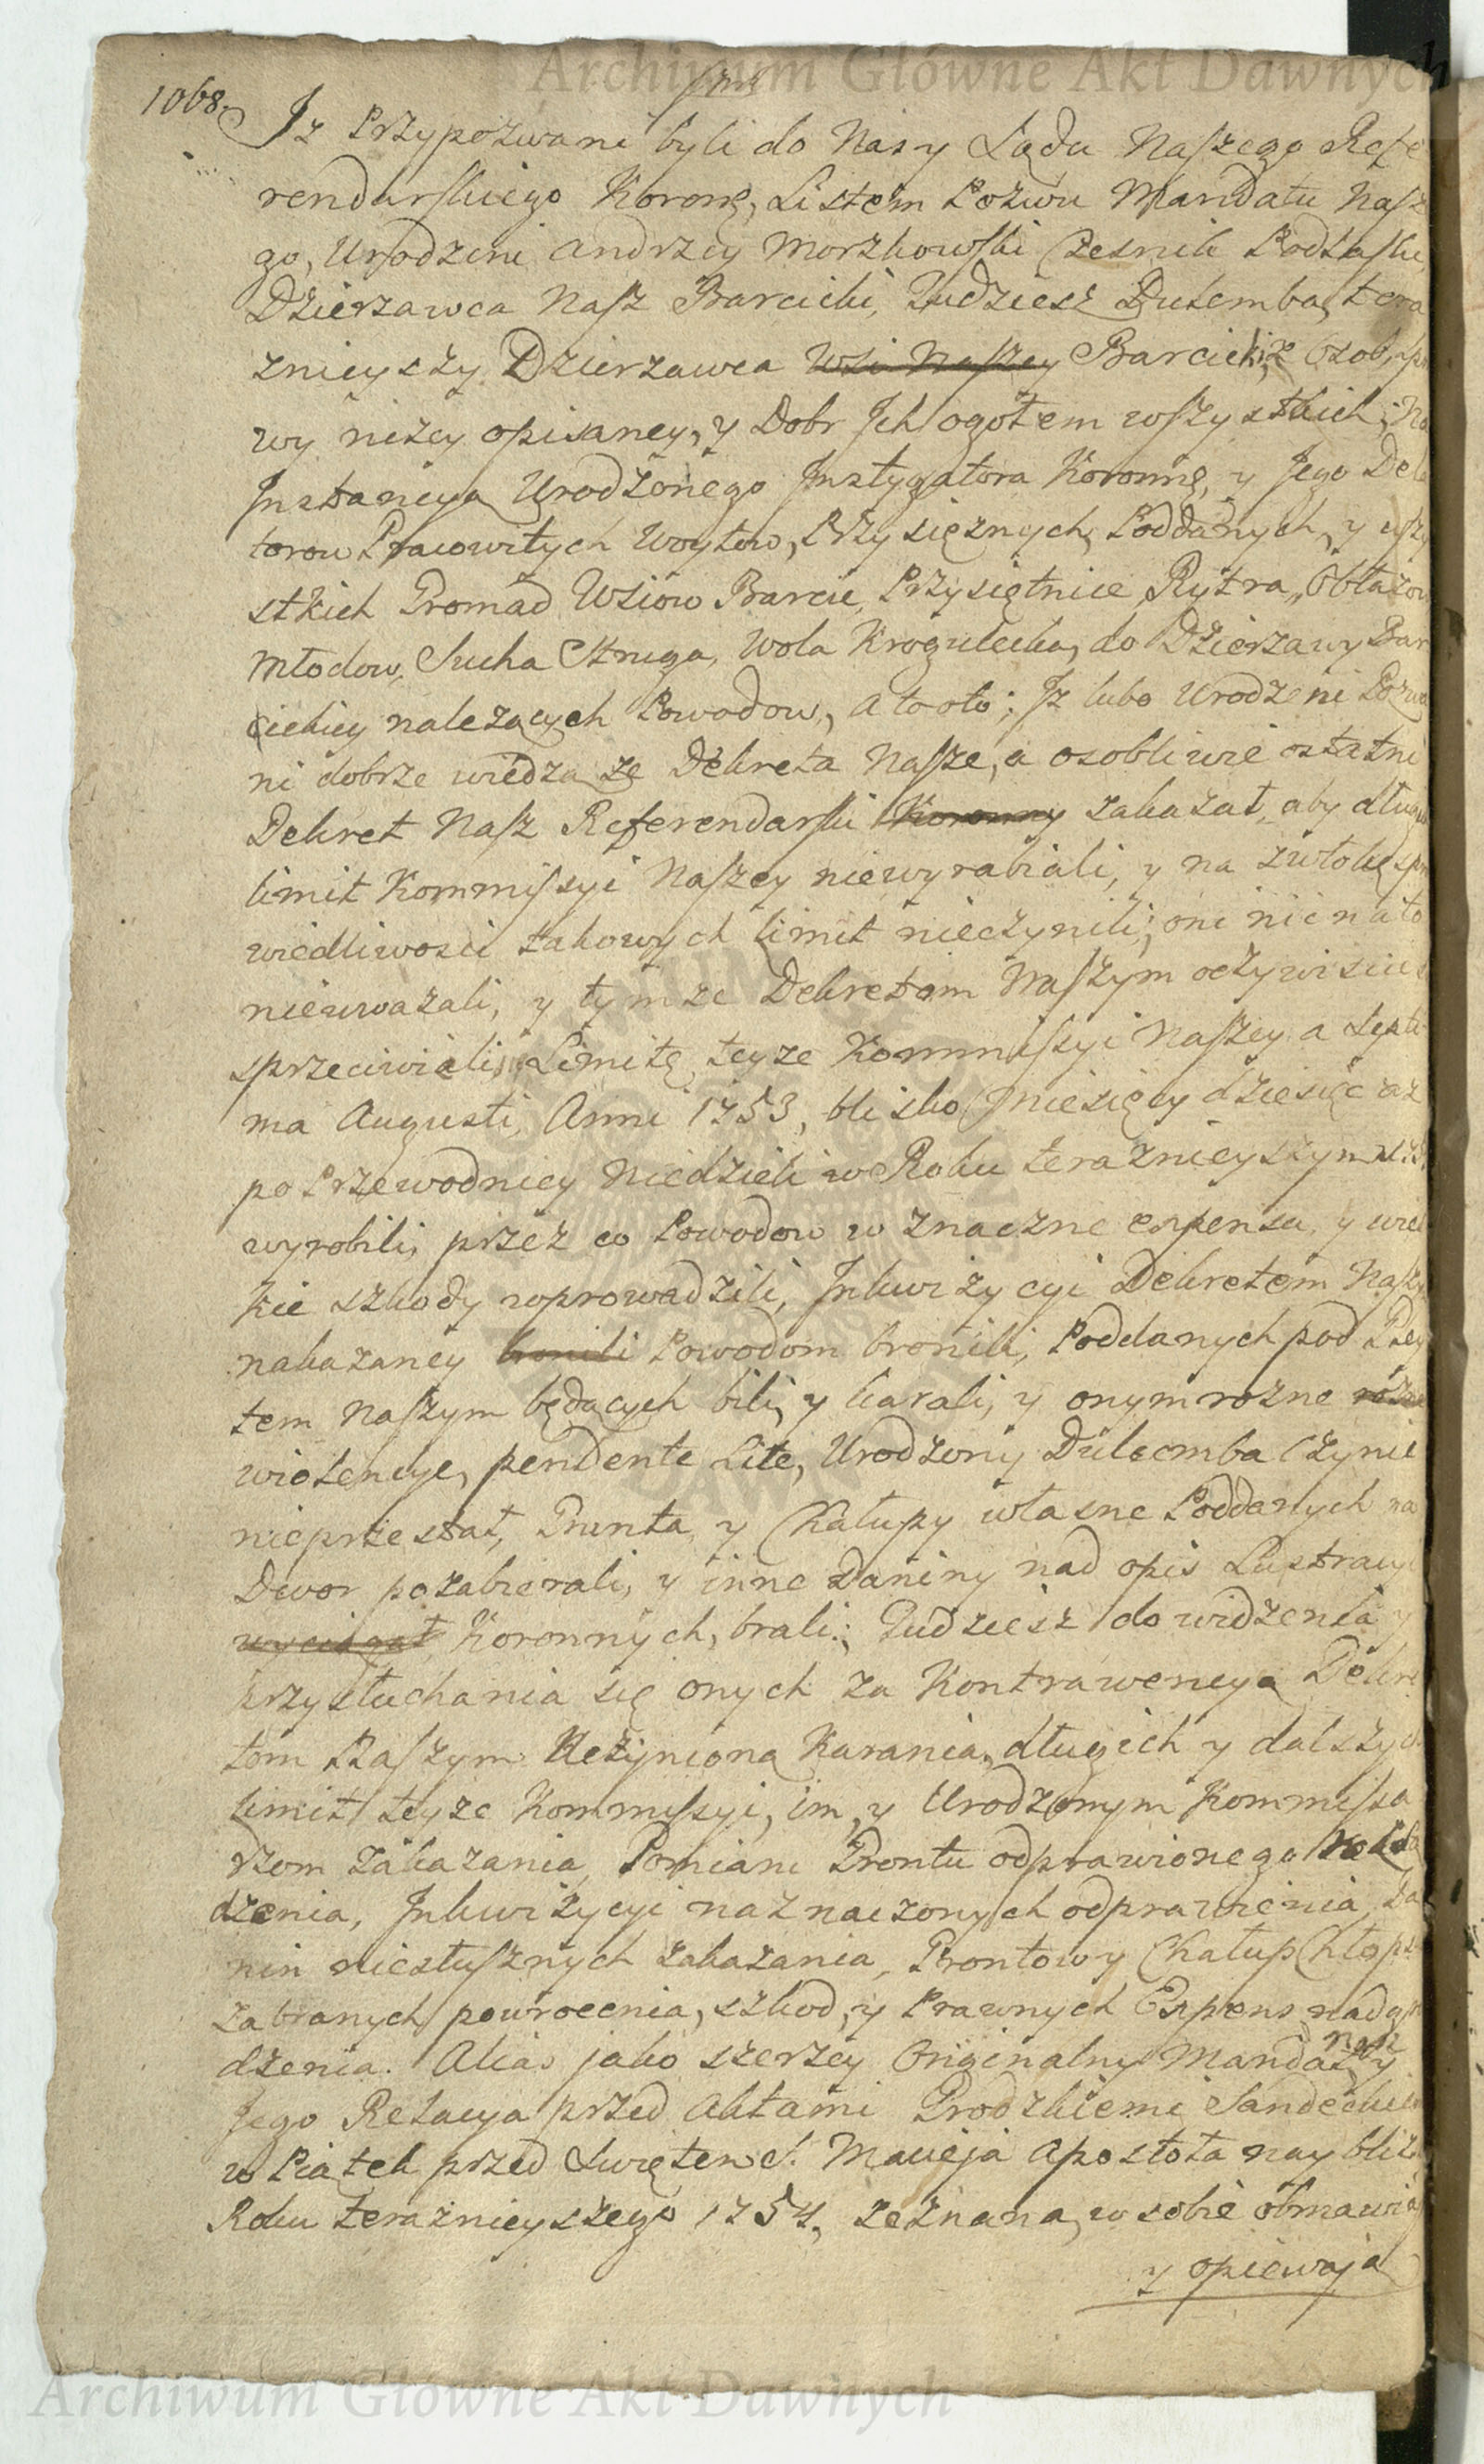 Archiwum Główne Akt Dawnych
1068.
Iz Przypozwani byli do Nas y Sądu Naszego Refe
rendarskiego Koronẽ, Listem Pozwu Mandatu Nasz
go, Urodzeni Andrzey Morzkowski Czesnik Podlaski,
Dzierzawca Nasz Barcicki, Tudziesz Dulemba, tera
znieyszy Dzierzawca Wsi Naszey Barcicki, z Osob, spra
wy nizey opisaney, y Dobr Ich ogołem wszystkich, Na
Instancyą Urodzonego Instygatora Koronnẽ, y Jego Dela
torow Pracowitych Woytow, Przysięznych, Poddanych, y wszy
stkich Gromad Wsiow Barcic, Przysietnice, Rytra, Obłazow
Młodow, Sucha Struga, Wola Krogulecka, do Dzierzawy Bar
cickiey nalezących Powodow, a to oto; Iz lubo Urodzeni Pozwa
ni dobrze wiedzą ze Dekreta Nasze, a osobliwie ostatni
Dekret Nasz Referendarski Koronny zakazał, aby długich
limit Kommissyi Naszey niewyrabiali, y na zwłokę spra
wiedliwosci takowych limit nieczynili; oni nic na to
nieuwazali, y tymze Dekretom Naszym oczywiscie
sprzeciwiali, Limitę teyze Kommissyi Naszey a Septi
ma Augusti, Anni 1753, blisko Miesięcy dziesięc az
po Przewodniey Niedzieli w Roku teraznieyszym
wyrobili, przez co Powodow w znaczne expensa, y wiel
kie szkody wprowadzili, Inkwizycyi Dekretem Naszym
nakazaney bronili Powodom bronili, Poddanych pod Gley
tem Naszym będących bili, y karali, y onym rozne rozne
wiolencye, pendente Lite, Urodzony Dulemba Czynic
nieprzestał, Grunta, y Chałupy własne Poddanych na
Dwor pozabierali, y inne Daniny nad opis Lustracyi
wyciągał Koronnych, brali; Tudziesz do widzenia y
przysłuchania się onych za Kontrawencyą Dekre
tom Naszym Uczynioną Karania, długich y dalszych
limit teyze Kommissyi, im, y Urodzonym Kommissa
rzom zakazania, Pomiaru Gruntu odprawionego
dzenia, Inkwizycyi naznaczonych odprawienia, Da
nin niesłusznych zakazania, Grontow y Chałup Chłops
zabranych powrocenia, szkod, y Prawnych Expens nadgro
dzenia. Alias jako szerzey Originalny Mandat Nasz y
Jego Relacya przed Aktami Grodzkiemi Sandeckiemi
w Piątek przed Swiętem S. Macieja Apostoła naybliz
Roku teraznieyszego 1754, zeznana, w sobie obmawia
y opiewają
Archiwum Główne Akt Dawnych